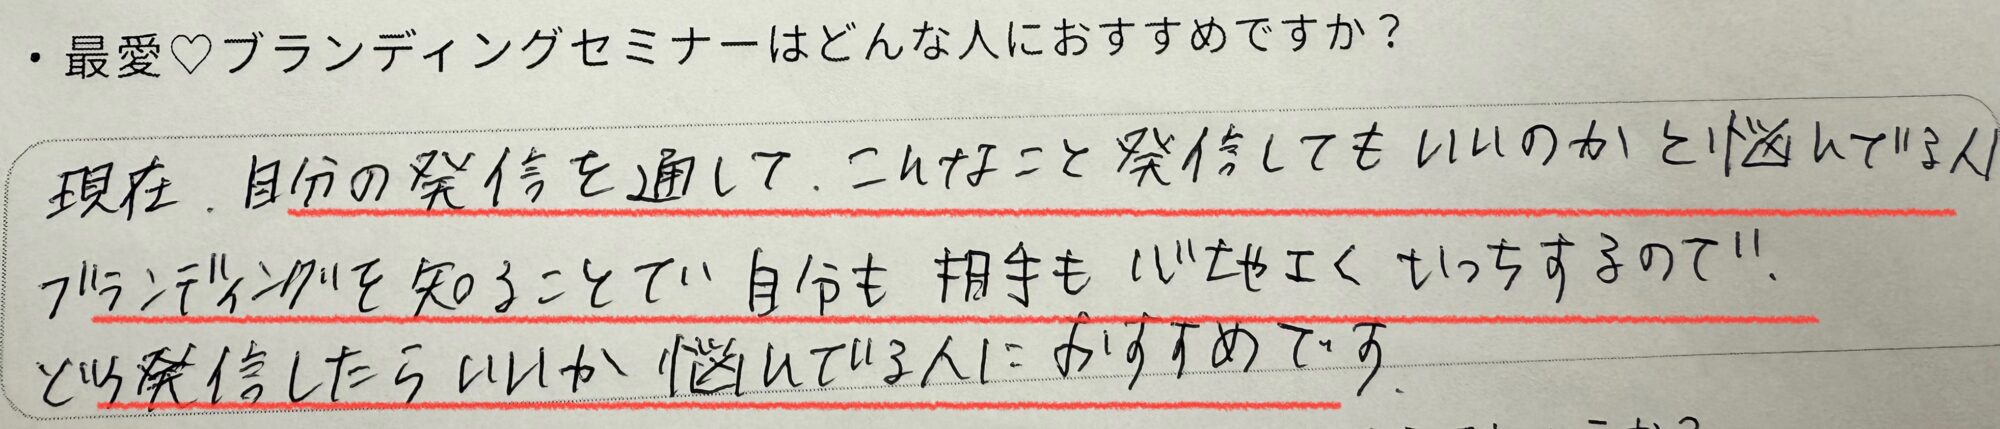 ・最愛♡ブランディングセミナーはどんな人におすすめですか？
現在、自分の発信を通して、こんなこと発信してもいいのかと悩んでいる人
ブランディングを知ることで自分も相手も心地よくいっちするので、
どう発信したらいいか悩んでいる人におすすめです。